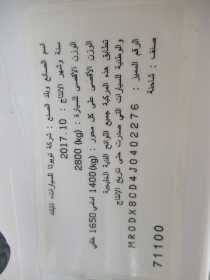 اسم الصانع وبلد الصنع : شركة تويوتا للسيارات، تايلاند
سنة وشهر الإنتاج : 2017.10
الوزن الأقصى للسيارة : 2800 (kg)
الوزن الأقصى على كل محور : 1400(kg) أمامي 1650 خلفي
تطابق هذه المركبة جميع اللوائح الفنية الخليجية
والوطنية للسيارات التي صدرت حتى تاريخ الإنتاج
الرقم المميز : MR0DX8CD4J0402276
صنف : شاحنة
71100